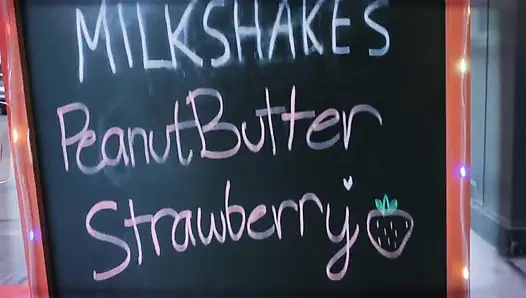 MILKSHAKES
PeanutButter
Strawberry